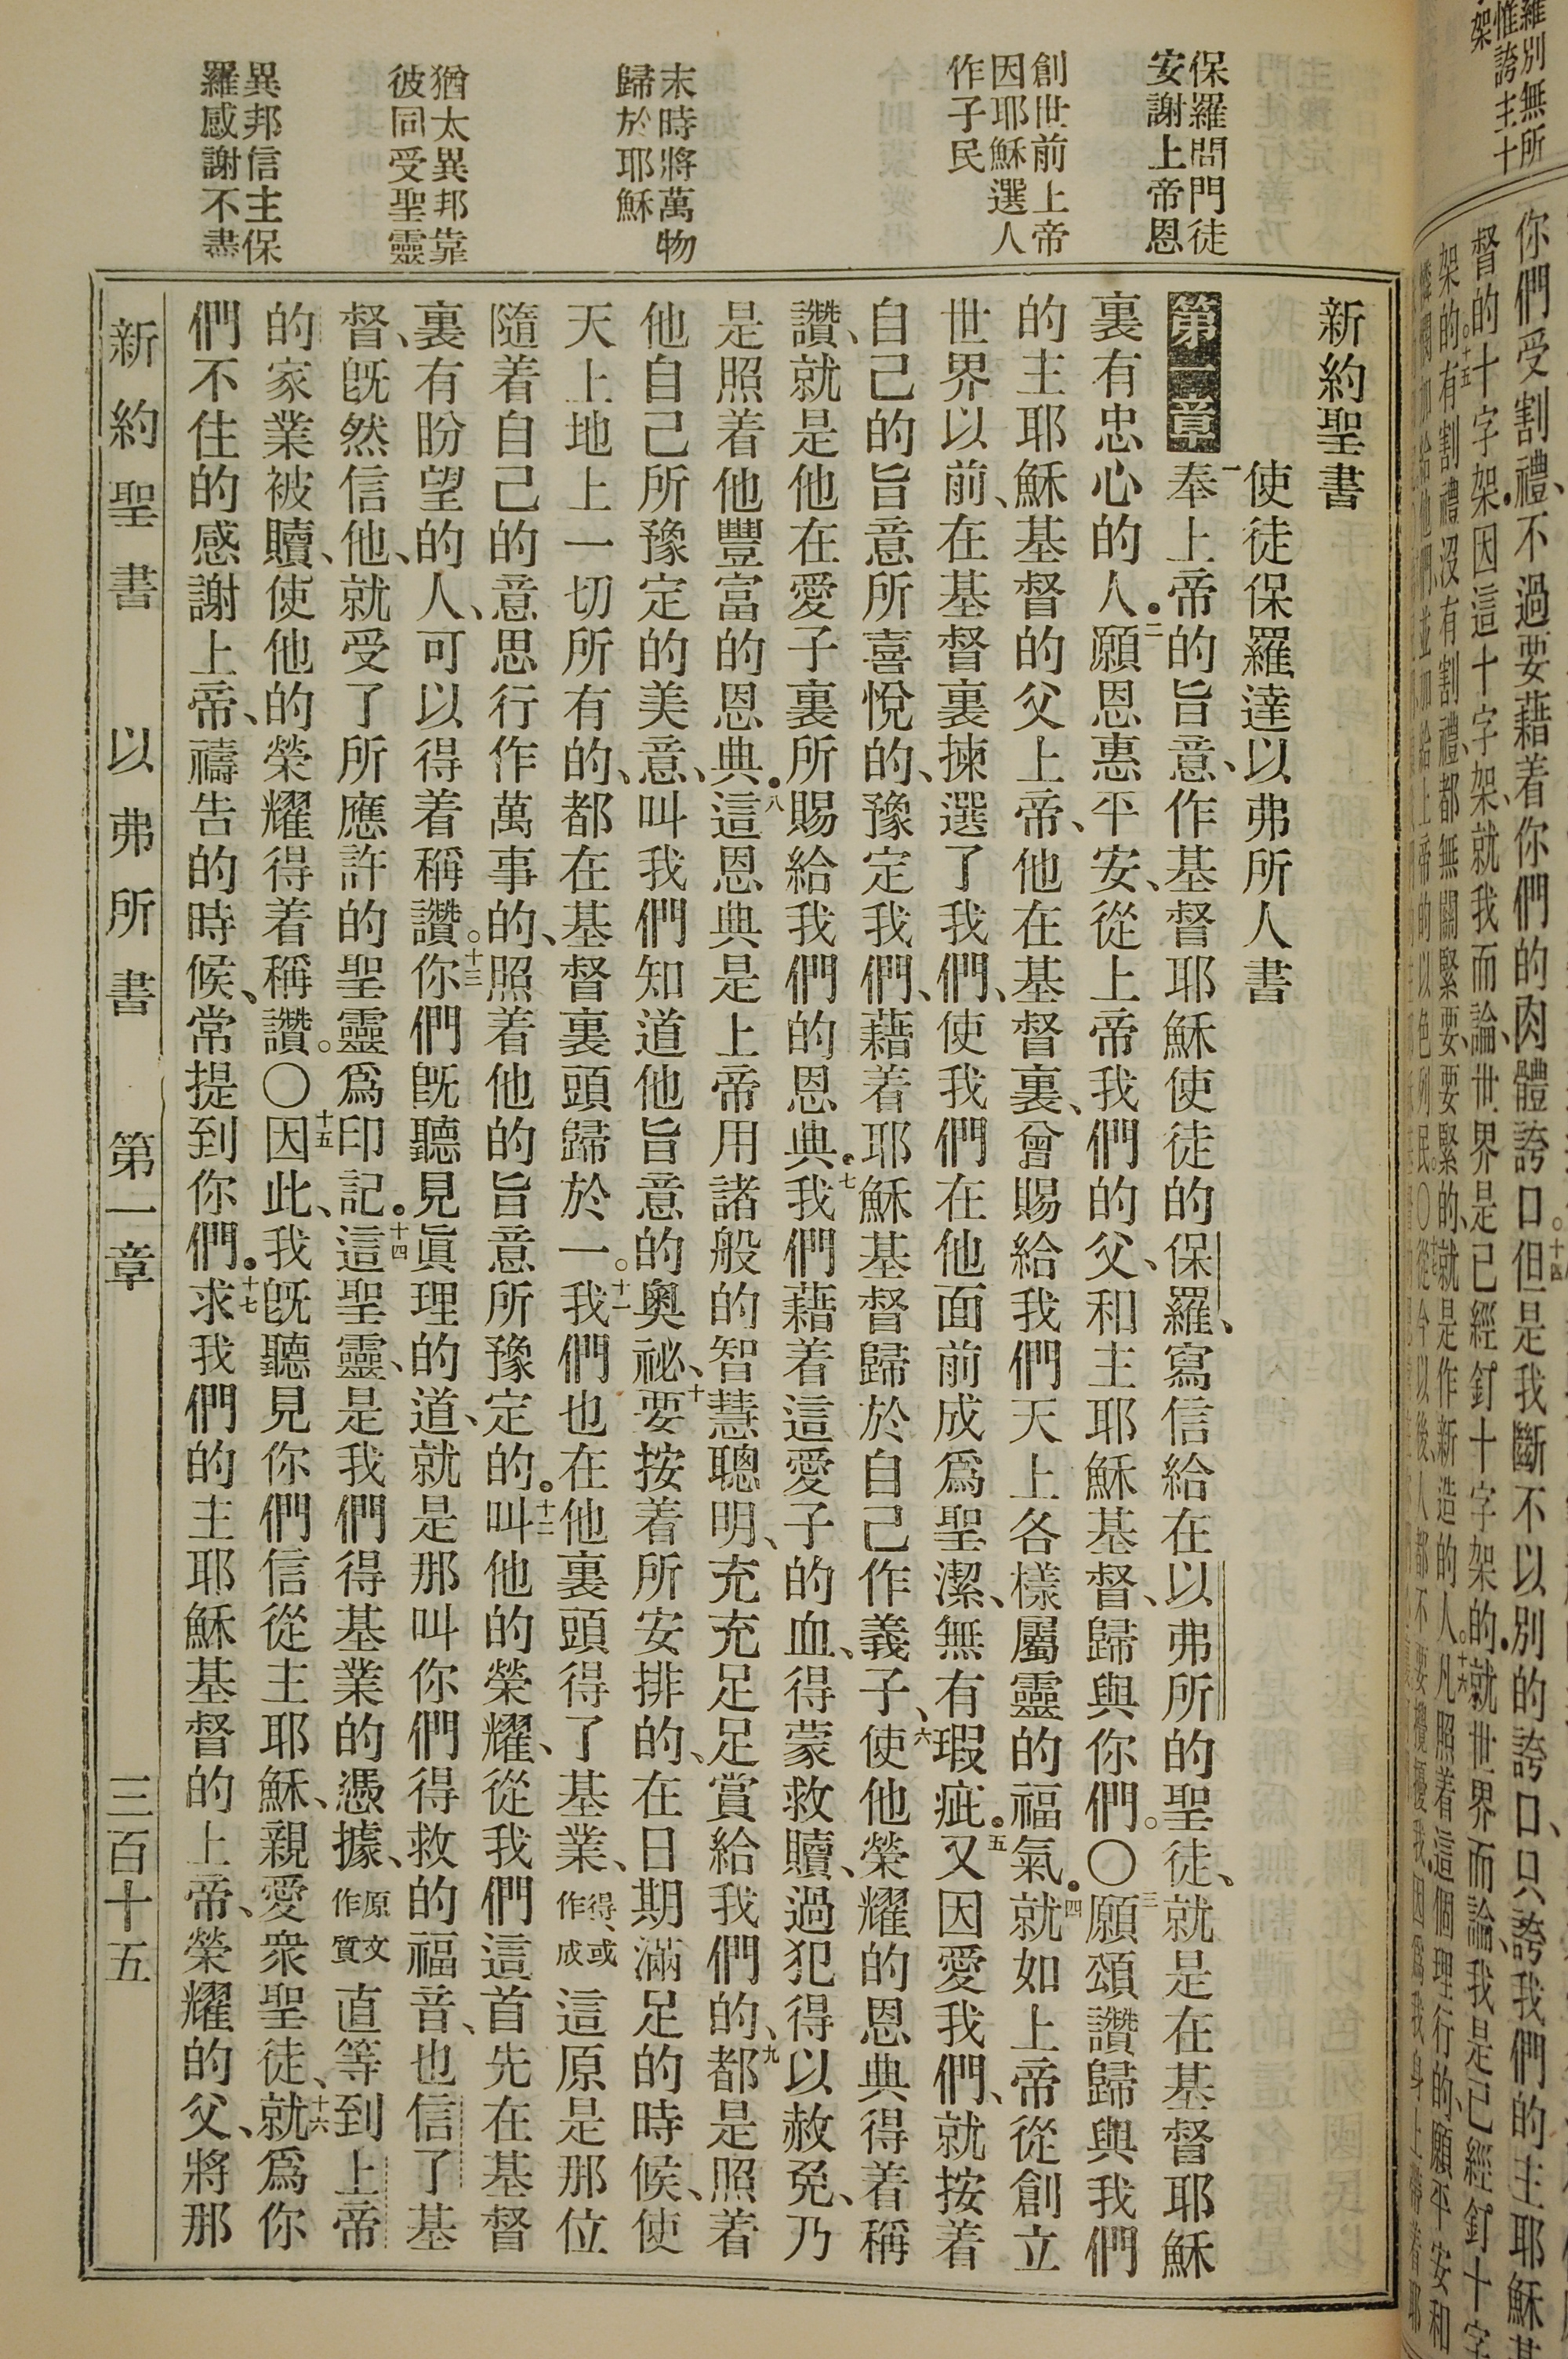 羅別無所
惟誇主十
架
你們受割禮、不過要藉着你們的肉體誇口。十四但是我斷不以別的誇口、只誇我們的主耶穌基
督的十字架．因這十字架、就我而論、世界是已經釘十字架的．就世界而論、我是已經釘十字
架的。十五有割禮沒有割禮、都無關緊要、要緊的、就是作新造的人。十六凡照着這個理行的、願平安和
憐憫加給他們、並加給上帝的以色列民。〇十七從今以後、人都不要攪擾我、因爲我身上帶着耶
保羅問門徒
安謝上帝恩
創世前上帝
因耶穌選人
作子民
末時將萬物
歸於耶穌
猶太異邦靠
彼同受聖靈
異邦信主保
羅感謝不盡
新約聖書
使徒保羅達以弗所人書
第一章 一奉上帝的旨意、作基督耶穌使徒的保羅、寫信給在以弗所的聖徒、就是在基督耶穌
裏有忠心的人．二願恩惠平安、從上帝我們的父、和主耶穌基督、歸與你們。〇三願頌讚歸與我們
的主耶穌基督的父上帝、他在基督裏、曾賜給我們天上各樣屬靈的福氣．四就如上帝從創立
世界以前、在基督裏揀選了我們、使我們在他面前成爲聖潔、無有瑕疵．五又因愛我們、就按着
自己的旨意所喜悅的、豫定我們、藉着耶穌基督歸於自己作義子、六使他榮耀的恩典得着稱
讚、就是他在愛子裏所賜給我們的恩典．七我們藉着這愛子的血、得蒙救贖、過犯得以赦免、乃
是照着他豐富的恩典．八這恩典是上帝用諸般的智慧聰明、充充足足賞給我們的、九都是照着
他自己所豫定的美意、叫我們知道他旨意的奧祕、十要按着所安排的、在日期滿足的時候、使
天上地上一切所有的、都在基督裏頭歸於一。十一我們也在他裏頭得了基業、得、或作成這原是那位
隨着自己的意思行作萬事的、照着他的旨意所豫定的．十二叫他的榮耀、從我們這首先在基督
裏有盼望的人、可以得着稱讚。十三你們旣聽見眞理的道、就是那叫你們得救的福音、也信了基
督、旣然信他、就受了所應許的聖靈爲印記．十四這聖靈、是我們得基業的憑據、原文作質直等到上帝
的家業被贖、使他的榮耀得着稱讚。〇十五因此、我旣聽見你們信從主耶穌、親愛衆聖徒、十六就爲你
們不住的感謝上帝、禱告的時候、常提到你們．十七求我們的主耶穌基督的上帝、榮耀的父、將那
新約聖書 以弗所書 第一章 三百十五